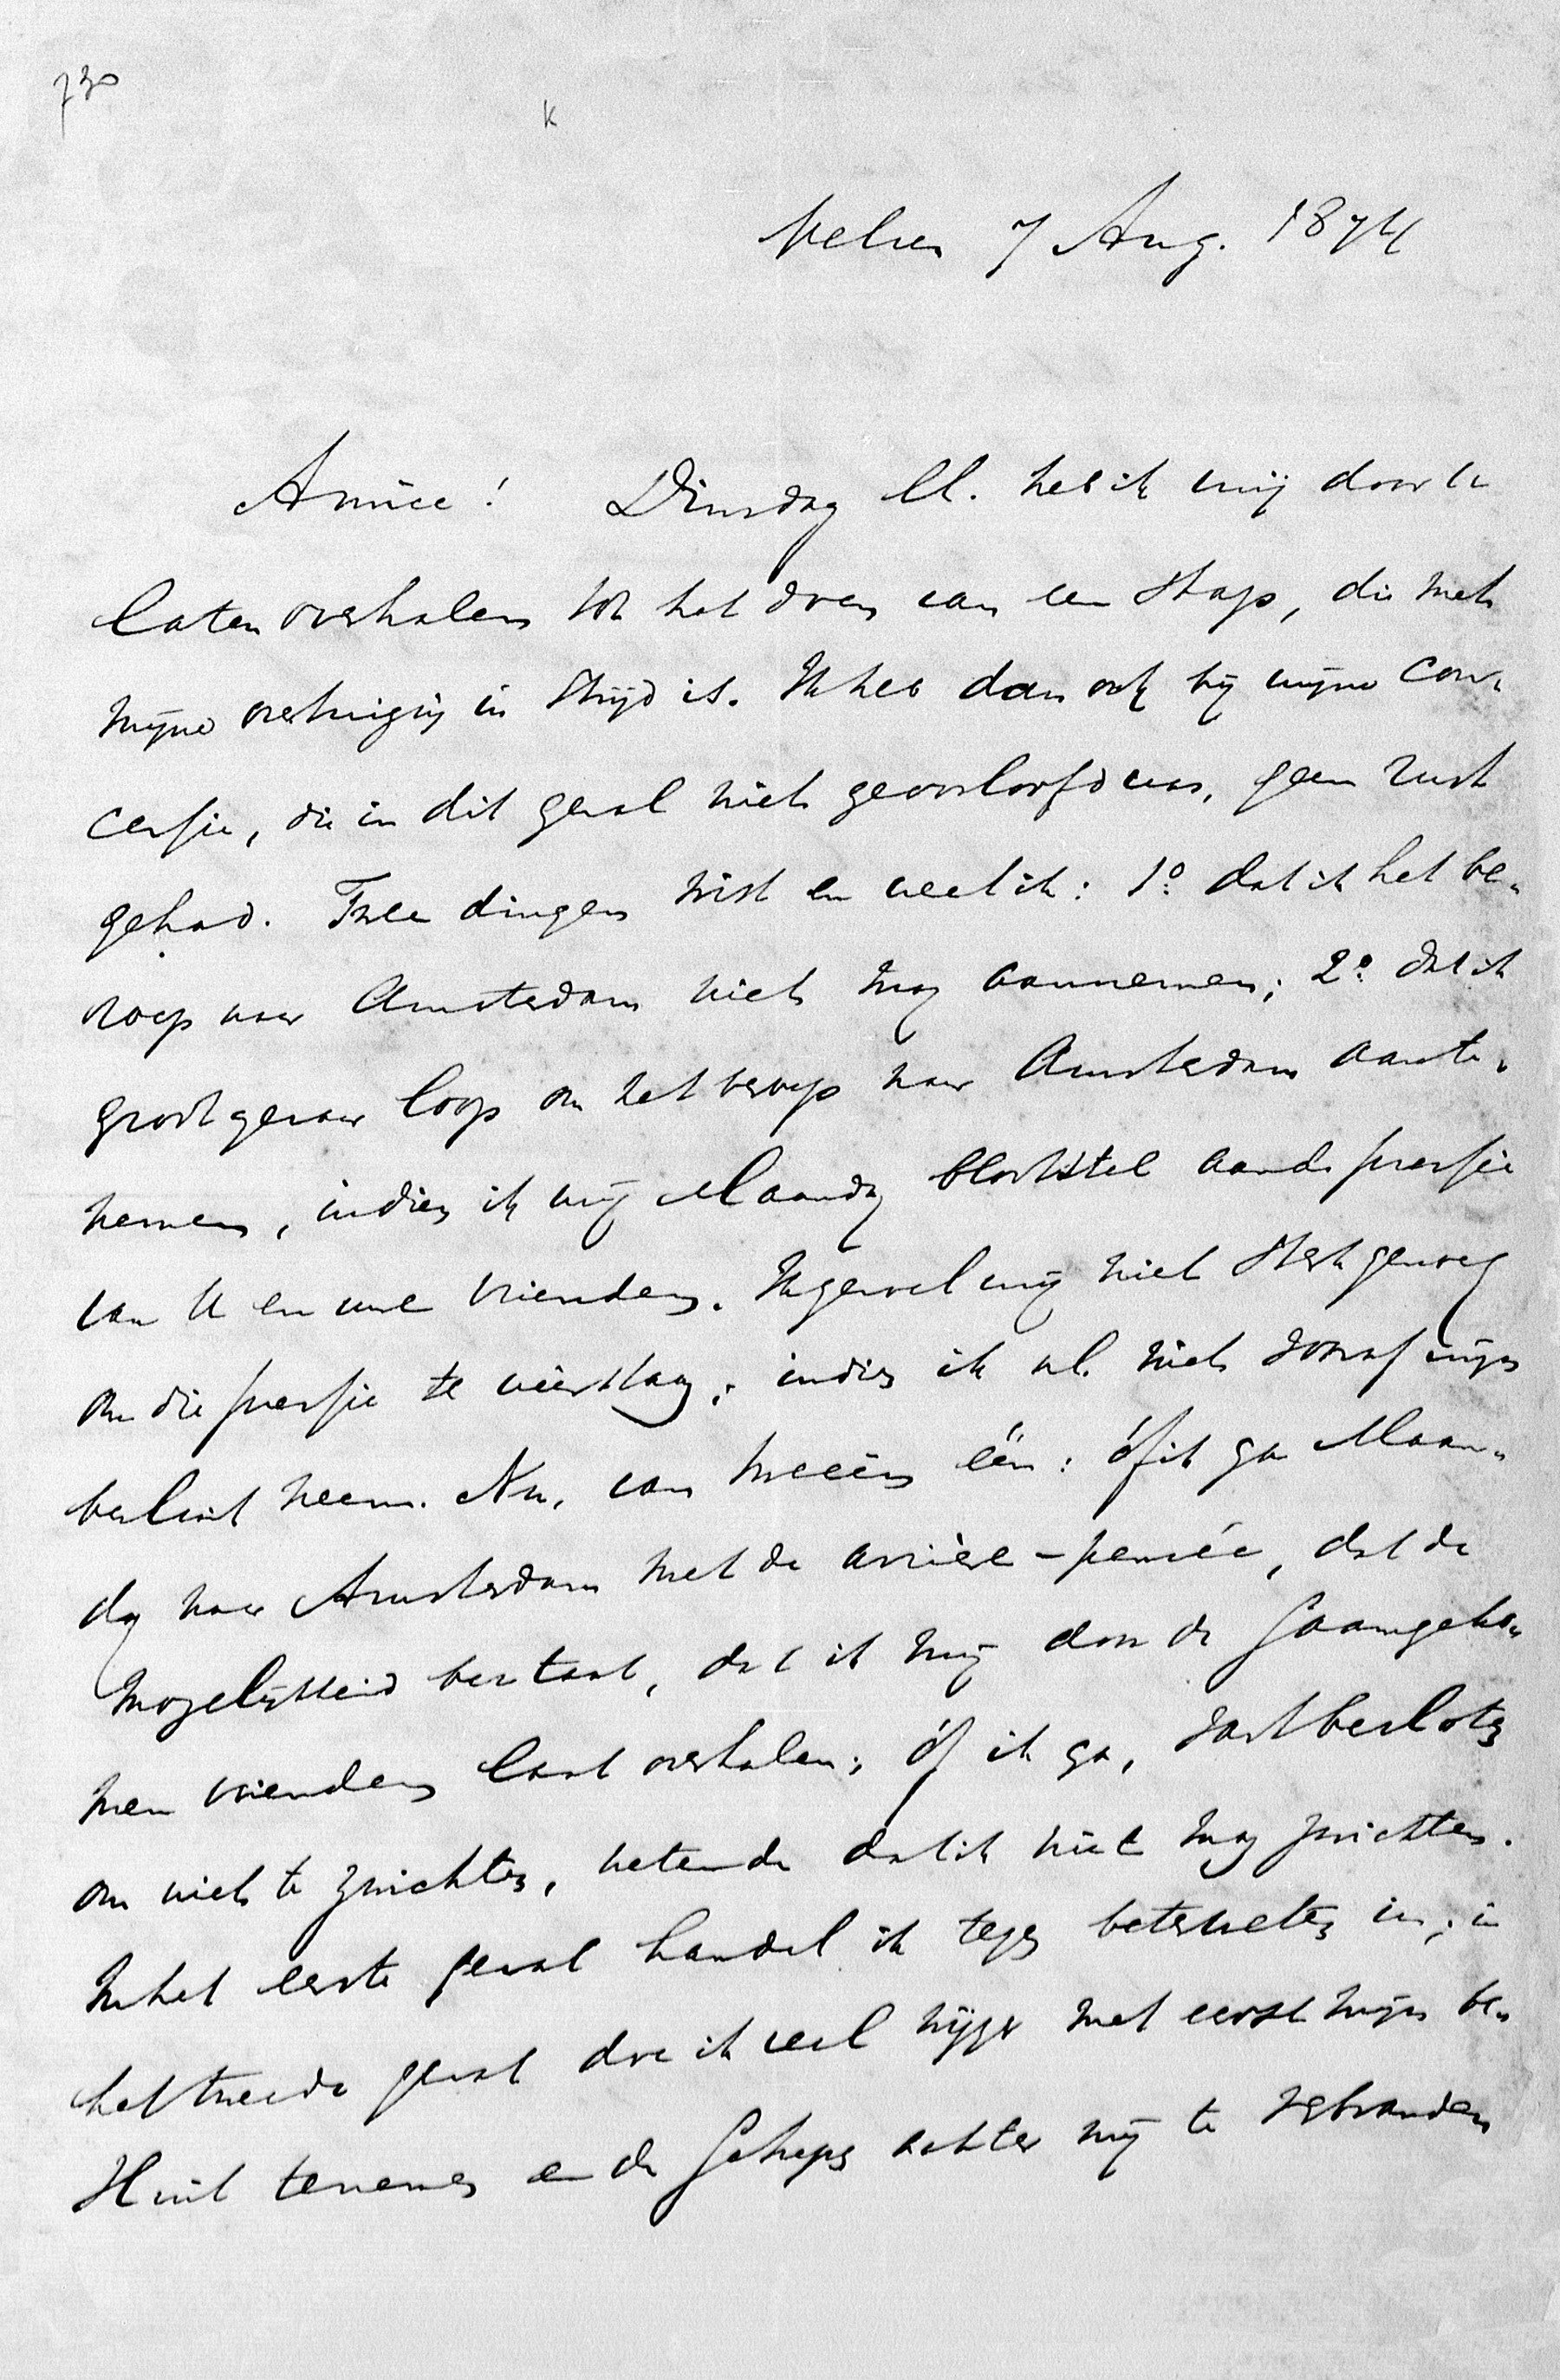 730
K
Velsen 7 Aug. 1874
Amice! Dinsdag ll. heb ik mij door U
laten overhalen tot het doen van een stap, die met
mijne overtuiging in strijd is. Ik heb dan ook bij mijne con-
cessie, die in dit geval niet geoorloofd was, geen rust
gehad. Twee dingen wist en weet ik: 1o. dat ik het be-
roep naar Amsterdam niet mag aannemen; 2o. dat ik
groot gevaar loop om het beroep naar Amsterdam aan te
nemen, indien ik mij Maandag blootstel aan de pressie
van U en uwe vrienden. Ik gevoel mij niet sterk genoeg
om die pressie te weerstaan; indien ik nl. niet vooraf mijn
besluit neem. Nu, van tweeën één: óf ik ga Maan-
dag naar Amsterdam met de arrière-pensée, dat de
mogelijkheid bestaat, dat ik mij door de saamgeko-
men vrienden laat overhalen; óf ik ga, vast besloten
om niet te zwichten, wetende dat ik niet mag zwichten.
In het eerste geval handel ik tegen beter weten in; in
het tweede geval doe ik veel wijzer met eerst mijn be-
sluit te nemen en de schepen achter mij te verbranden